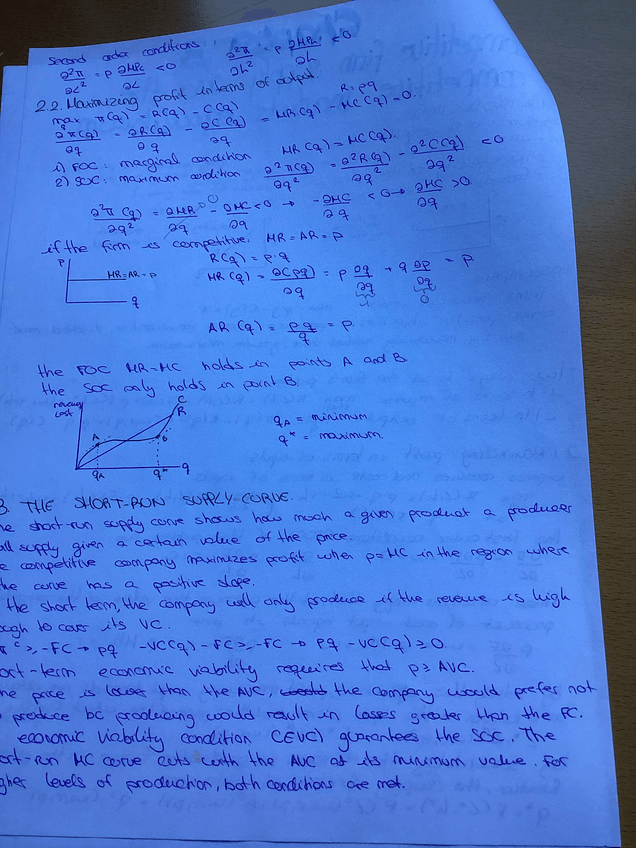 Second order conditions:
∂²π/∂L² = p ∂MPL/∂L < 0    ∂²π/∂h² = p ∂MPh/∂h < 0
2.2. Maximizing profit in terms of output.
max π(q) = R(q) - C(q)    R = pq
q
∂π(q)/∂q = ∂R(q)/∂q - ∂C(q)/∂q = MR(q) - MC(q) = 0.
1) FOC: marginal condition    MR(q) = MC(q).
2) SOC: maximum condition    ∂²π(q)/∂q² = ∂²R(q)/∂q² - ∂²C(q)/∂q² < 0
∂²π(q)/∂q² = ∂MR/∂q - ∂MC/∂q < 0 → -∂MC/∂q < 0 → ∂MC/∂q > 0
0
if the firm is competitive: MR = AR = P
R(q) = p·q
P
MR = AR = P
q
MR(q) = ∂(pq)/∂q = p ∂q/∂q + q ∂p/∂q = p
1 0
AR(q) = pq/q = p.
the FOC MR=MC holds in points A and B
the SOC only holds in point B.
revenue
cost
C
R
A
B
qA
q*
q
qA = minimum
q* = maximum.
3. THE SHORT-RUN SUPPLY CURVE.
he short-run supply curve shows how much a given product a producer
ll supply given a certain value of the price.
e competitive company maximizes profit when p=MC in the region where
he curve has a positive slope.
the short term, the company will only produce if the revenue is high
ough to cover its VC.
π^c ≥ -FC → pq - VC(q) - FC ≥ -FC → pq - VC(q) ≥ 0.
ort-term economic viability requires that p ≥ AVC.
he price is lower than the AVC, the company would prefer not
produce bc producing would result in losses greater than the FC.
economic viability condition (EVC) guarantees the SOC. The
ort-run MC curve cuts with the AVC at its minimum value. For
gher levels of production, both conditions are met.